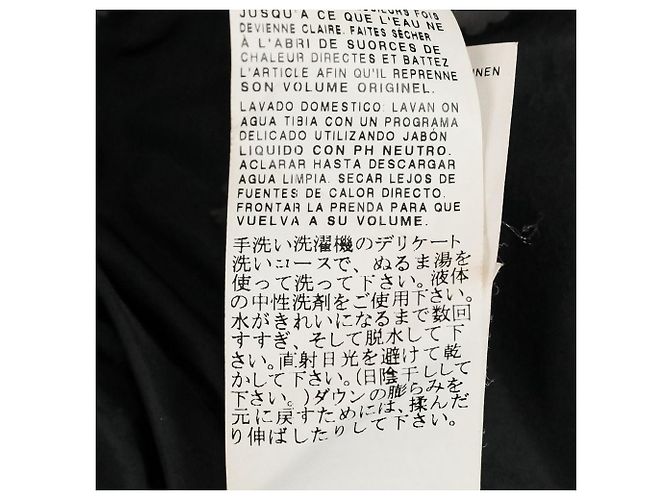 JUSQU'A CE QUE L'EAU NE
DEVIENNE CLAIRE. FAITES SÈCHER
À L'ABRI DE SUORCES DE
CHALEUR DIRECTES ET BATTEZ
L'ARTICLE AFIN QU'IL REPRENNE
SON VOLUME ORIGINEL.
LAVADO DOMESTICO: LAVAN ON
AGUA TIBIA CON UN PROGRAMA
DELICADO UTILIZANDO JABÓN
LIQUIDO CON PH NEUTRO.
ACLARAR HASTA DESCARGAR
AGUA LIMPIA. SECAR LEJOS DE
FUENTES DE CALOR DIRECTO.
FRONTAR LA PRENDA PARA QUE
VUELVA A SU VOLUME.
手洗い洗濯機のデリケート
洗いコースで、ぬるま湯を
使って洗って下さい。液体
の中性洗剤をご使用下さい。
水がきれいになるまで数回
すすぎ、そして脱水して下
さい。直射日光を避けて乾
かして下さい。(日陰干しして
下さい。)ダウンの膨らみを
元に戻すためには、揉んだ
り伸ばしたりして下さい。